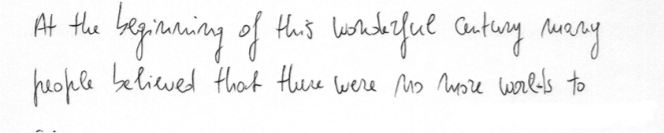 At the beginning of this wonderful century many
people believed that there were no more worlds to